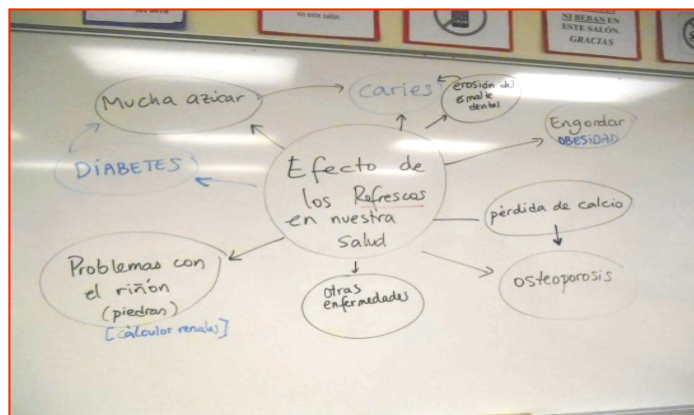 en este salón.
NI BEBAN EN
ESTE SALÓN.
GRACIAS
Mucha azúcar
caries
erosión de
esmalte
dental
Engordar
OBESIDAD
DIABETES
Efecto de
los Refrescos
en nuestra
salud
pérdida de calcio
Problemas con
el riñón
(piedras)
[cálculor renales]
otras
enfermedades
osteoporosis